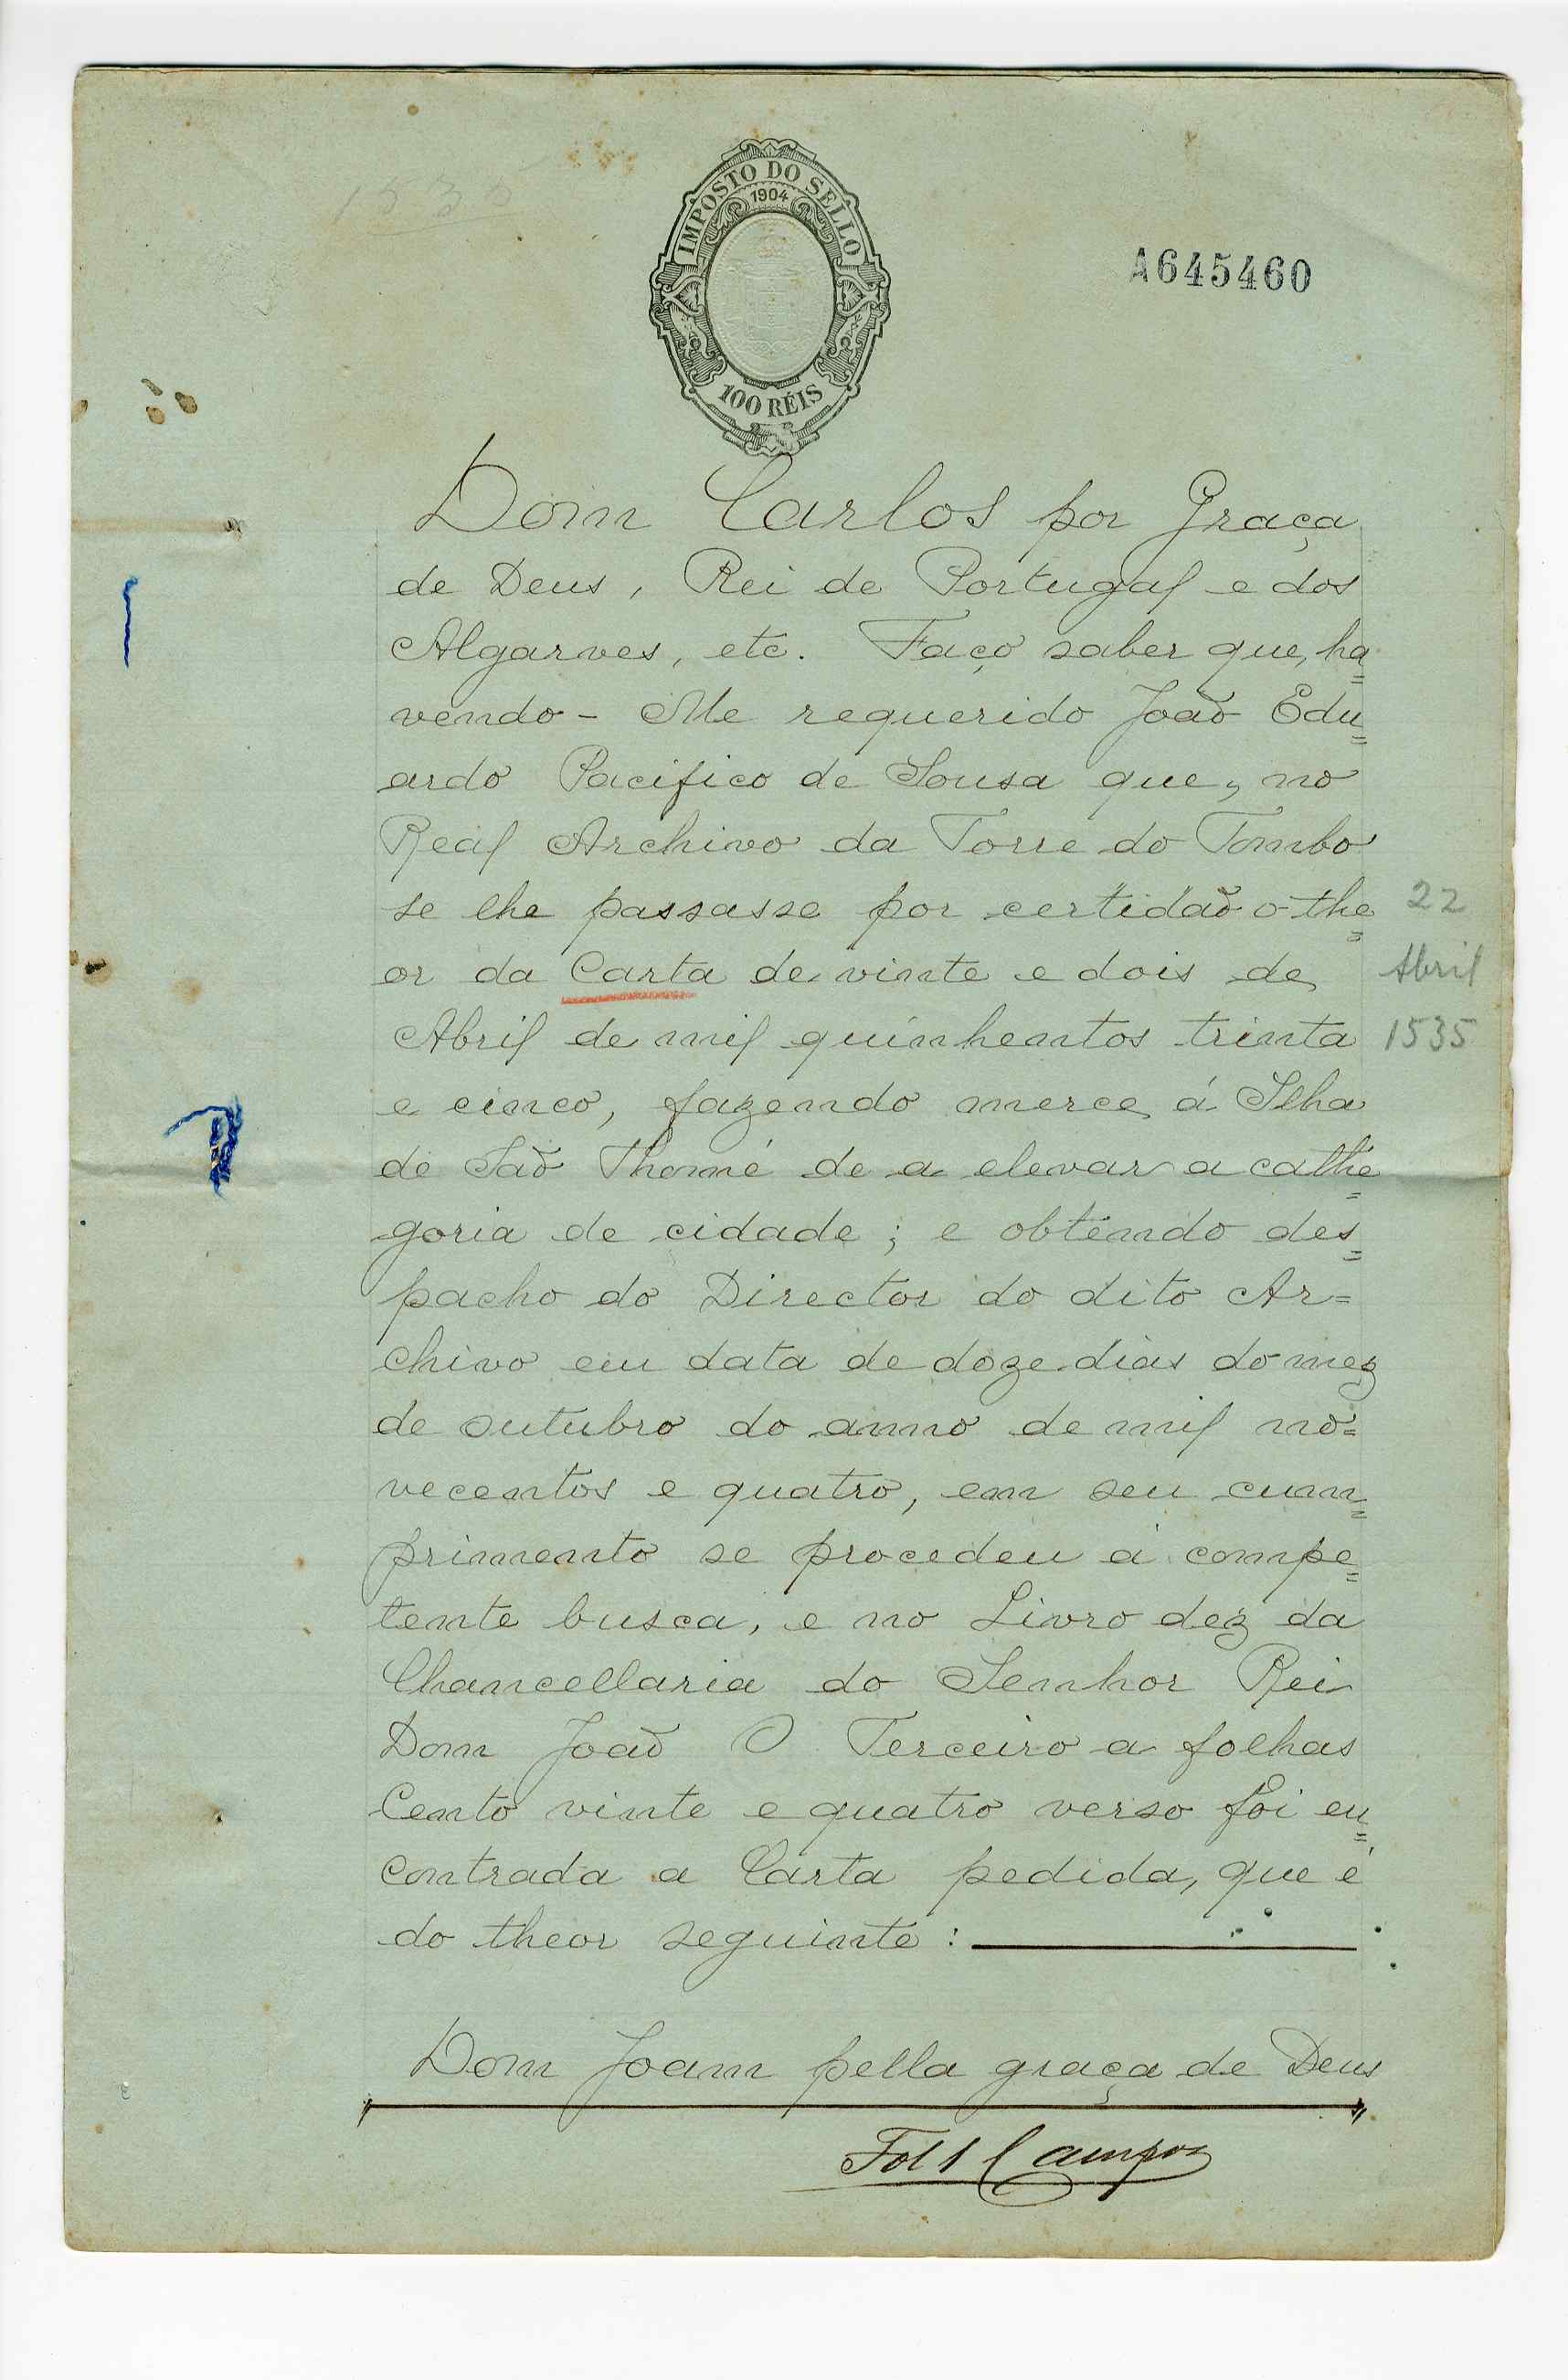 1535
IMPOSTO DO SELLO
1904
100 RÉIS
A645460
Dom Carlos por Graça
de Deus, Rei de Portugal e dos
Algarves, etc. Faço saber que, ha=
vendo-Me requerido João Edu=
ardo Pacifico de Sousa que, no
Real Archivo da Torre do Tombo
se lhe passasse por certidão o the=
or da Carta de vinte e dois de
Abril de mil quinhentos trinta
e cinco, fazendo merce á Ilha
de São Thomé de a elevar a cathe=
goria de cidade; e obtendo des=
pacho do Director do dito Ar=
chivo em data de doze dias do mez
de outubro do anno de mil no=
vecentos e quatro, em seu cum=
primento se procedeu á compe=
tente busca, e no Livro dez da
Chancellaria do Senhor Rei
Dom João O Terceiro a folhas
Cento vinte e quatro verso foi en=
contrada a Carta pedida, que é
do theor seguinte:
22
Abril
1535
Dom Joam pella graça de Deus
Fol 1 Campos